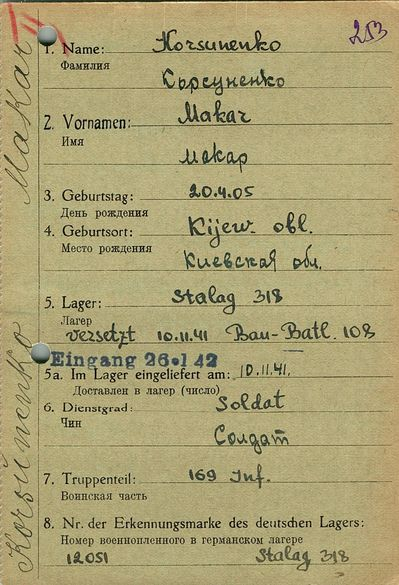 Korsunenko Makar
II
253
1. Name: Korsunenko
Фамилия
Корсуненко
2. Vornamen: Makar
Имя
Макар
3. Geburtstag: 20.4.05
День рождения
4. Geburtsort: Kijew obl.
Место рождения
Киевская обл.
5. Lager: Stalag 318
Лагер
versetzt 10.11.41 Bau-Batl. 108
Eingang 26.1 42
5a. Im Lager eingeliefert am: 10.11.41.
Доставлен в лагер (число)
6. Dienstgrad: Soldat
Чин
Солдат
7. Truppenteil: 169 Inf.
Воинская часть
8. Nr. der Erkennungsmarke des deutschen Lagers:
Номер военнопленного в германском лагере
12051 Stalag 318